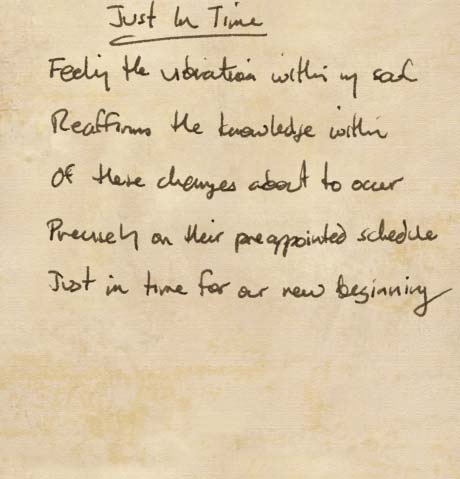 Just In Time
Feeling the vibration within my soul
Reaffirms the knowledge within
Of these changes about to occur
Precisely on their preappointed schedule
Just in time for our new beginning